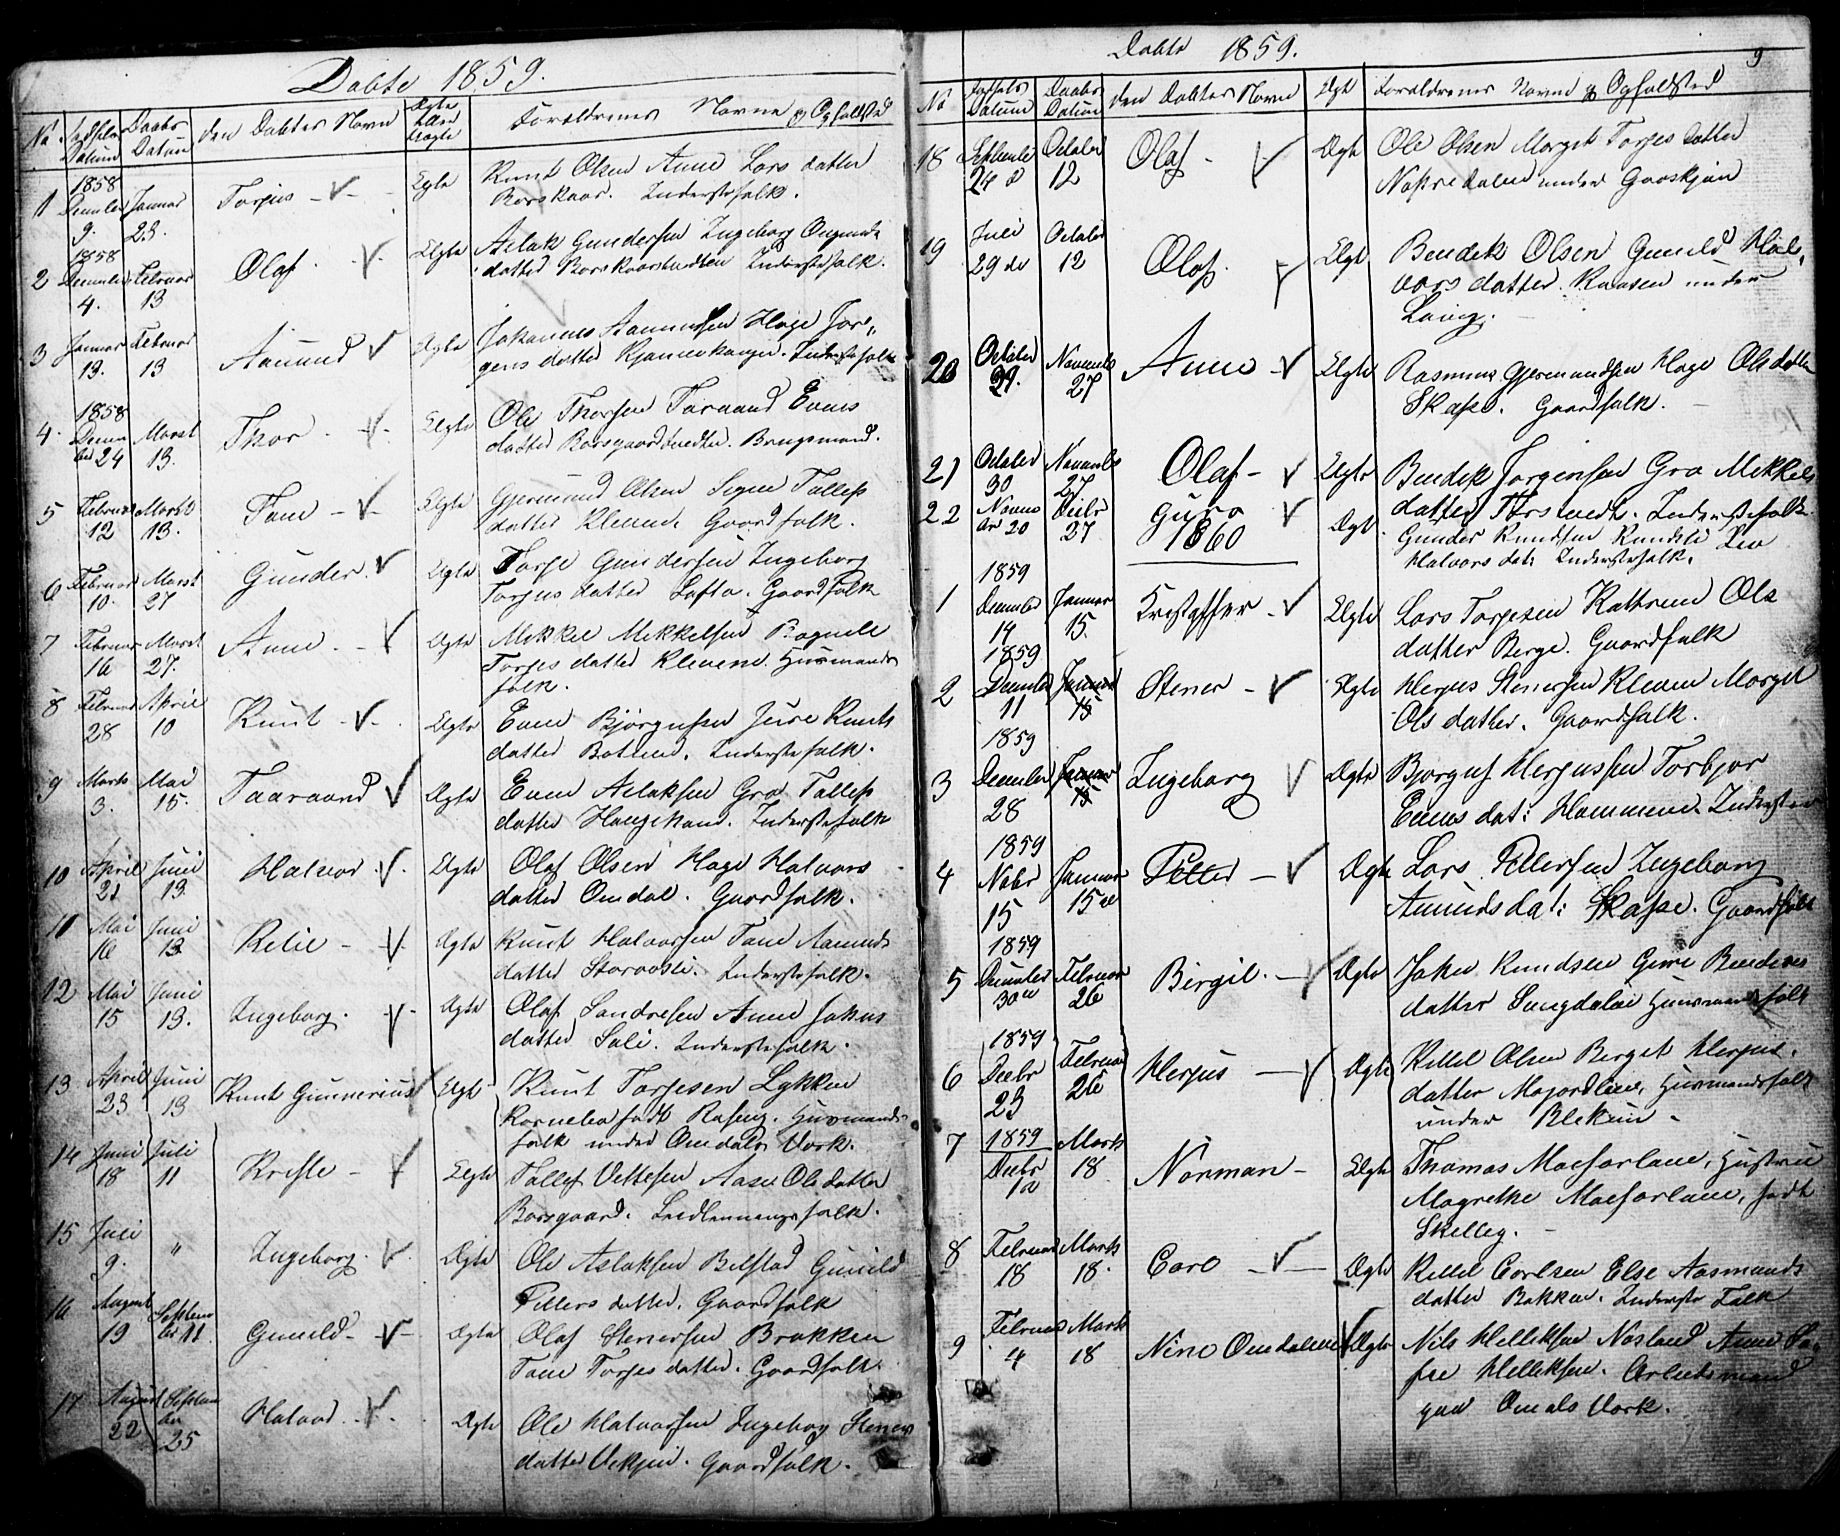 Døbte 1859.
No Fødsels Datum Daabs Datum den Døbtes Navn Ægte eller uægte Forældrenes Navne og Opholdsted
1 1858 Decmber 9. Januar 23. Torjus Egte Knut Olsen Anne Lars datter
Inderstefolk.
2 1858 Decmber 4. Februar 13 Olaf Ekgte Aslak Gundersen Ingeborg
datter Inderstefolk.
3 Januar 19. Februar 13 Aamund Ægte Johannes Aamundsen Hæge Jør-
gens datter Inderstefolk
4. 1858 Decem ber 24 Marst 13. Thor Ekgte Ole Thorsen Taraand Evens
datter Brugsmand.
5 Februar 12 Marst 13. Tone Ekgte Gjermund Olsen Signe Tallefs
datter Klevene Gaardfolk.
6 Februar 10. Marst 27 Gunder Ekgte Torje Gundersen Ingeborg
Torjus datter Lofta. Gaardfolk
7 Februar 16 Marst 27. Anne Ægte Mikkel Mikkelsen Ragnele
Torjes datter Klevene. Husmands
folk.
8 Februar 28 April 10 Knut Ekgte Even Bjørgusen Jure Knuts
datter Botnen. Inderstefolk.
9 Marts 3. Mai 15. Taaraand Ægte Even Aslaksen Gro Tallefs
datter Haugekaas. Inderstefolk
10 April 21 Juni 13 Halvor Ekgte Olaf Olsen Hæge Halvors
datter Omdal. Gaardfolk.
11 Mai 16 Juni 13 Ketil Ægte Knut Halvorsen Tone Aamunds
datter Inderstefolk.
12 Mai 15 Juni 13. Ingeborg. Ægte Olaf Sondresen Anne Johns
datter Inderstefolk.
13 April 23 Juni 13 Knut Gunnerius Ekgte Knut Torjesen Lykken
Kornelia født Husmands-
folk under Omdals Værk.
14 Juni 18 Juli 11 Kristi Ekgte Tallef Vettesen Aase Ols datter
Borsgaard. folk.
15 Juli 9. " Ingeborg. Ægte Ole Aslaksen Bilstad Gunild
Pitters datter. Gaardfolk
16 August 19 Septem ber 11 Gunild Ægte Olaf Stenersen Brokken
Tone Torjes datter. Gaardfolk.
17 August 22 Septem ber 25 Halvod Ægte Ole Halvorsen Ingeborg Steners
datter Gaardfolk.
Døbte 1859. 9
No Fødsels Datum Daabs Datum den Døbtes Navn Ægt Forældrenes Navne og Opholdsted
18 Septembr 24 d October 12 Olaf Ægte Ole Olsen Marget Torjes datter
under
19 Juli 29 de October 12 Olaf Ekgt Bendik Olsen Gunild Hal-
vors datter. Raasen under
20 October 29. Novembr 27 Anne Ekgte Rasmus Gjermundsen Hæge Olsdatter
Skafse. Gaardfolk.
21 October 30 Novembr 27 Olaf Ekgte Bendik Jørgensen Gro Mikkels
datter Inderstefolk
22 Novem br 20 Dcbr 27 Guro Ægt. Gunder Knudsen Liv
Halvors dat: Inderstefolk.
1860
1 1859 Decmber 14 Januar 15. Kristoffer Ekgte Lars Torjesen Kathrine Ols
datter Berge. Gaardfolk
2 1859 Decmber 11 Januar 15 Stener Ekgte Herjus Stenersen Kleven Margit
Ols datter. Gaardfolk.
3 1859 Decmber 28 Januar 15 Ingeborg Ægte Bjørguf Herjussen Torbjor
Evens dat: Hommene. Inderster
4 1859 Nobr 15 Januar 15de Petter Ægte Lars Pettersen Ingeborg
Amunds dat: Skafse. Gaardfolk
5 1859 Decmber 30 Februar 26 Birgit. Ægte John Knudsen Gunne Bendiks
datter Husmandsfolk
6 1859 Decbr 23 Februar 26 Herjus Ægte Kittil Olsen Berget Herjus
datter Husmandsfolk
under
7 1859 Decbr 12 Marts 18 Norman Ekgte Thomas Macfarlane, Hustrue
Magrethe Macfarlane, født
Skelley.
8 Februar 18 Marts 18. Carl Ægte Kittil Carlsen Else Aasmunds
datter Bakken. Inderste Folk
9 Februar 4 Marts 18 Nino Omdaline Ægte Nils Helliksen Nasland Anne So-
fie Helliksen. Arbeidsmand
paa Omdals Værk.